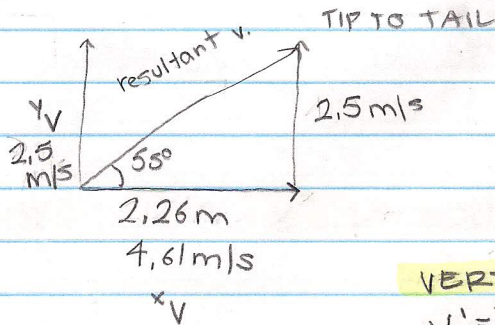 TIP TO TAIL
resultant v.
yV
2,5
m/s
2,5 m/s
55°
2,26 m
4,61 m/s
xV
VERT